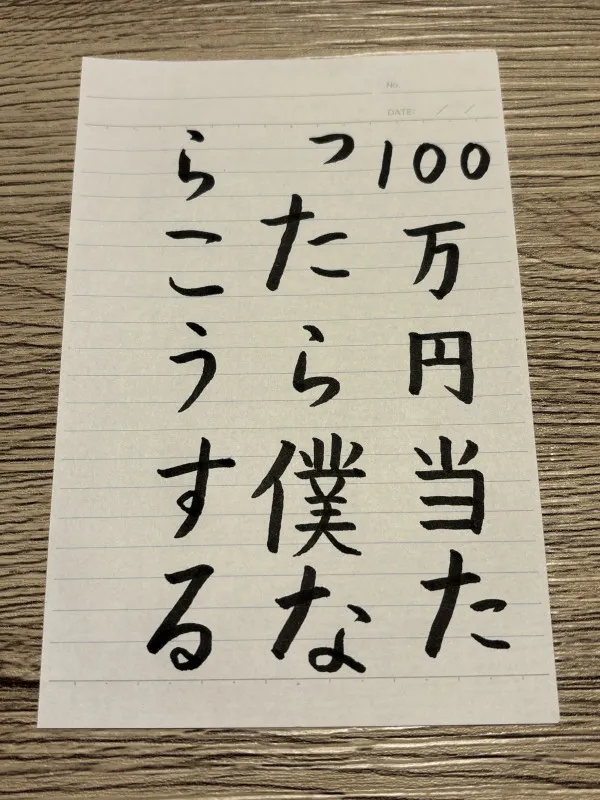 No.
DATE: / /
100万円当た
ったら僕な
らこうする